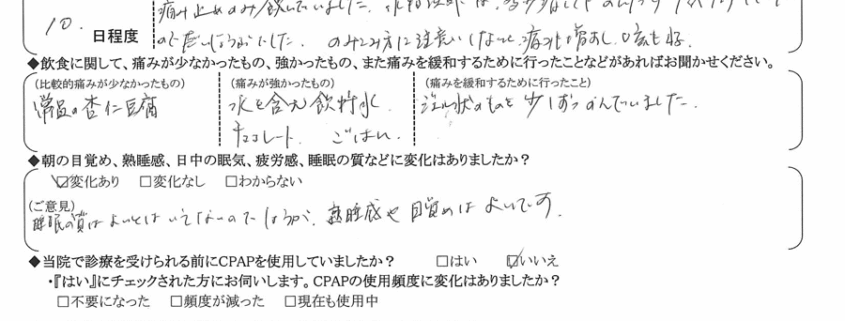 痛み止めのみ飲んでいました。
10 日程度
のみ込み方に注意しないと、
◆飲食に関して、痛みが少なかったもの、強かったもの、また痛みを緩和するために行ったことなどがあればお聞かせください。
(比較的痛みが少なかったもの) (痛みが強かったもの) (痛みを緩和するために行ったこと)
常温の杏仁豆腐 水を含む飲料水 少しずつのんでいました。
チョコレート、ごはん
◆朝の目覚め、熟睡感、日中の眠気、疲労感、睡眠の質などに変化はありましたか?
☑変化あり □変化なし □わからない
(ご意見)
睡眠の質はよいとはいえないのでしょうが、熟睡感や目覚めはよいです。
◆当院で診療を受けられる前にCPAPを使用していましたか? □はい ☑いいえ
・『はい』にチェックされた方にお伺いします。CPAPの使用頻度に変化はありましたか?
□不要になった □頻度が減った □現在も使用中